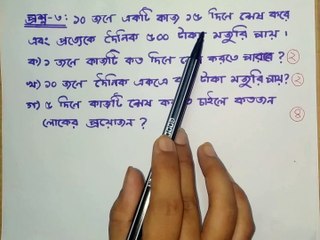 প্রশ্ন-৩: ১০ জনে একটি কাজ ১৫ দিনে শেষ করে
এবং প্রত্যেকে দৈনিক ৫০০ টাকা মজুরি পায়।
ক) ১ জনে কাজটি কত দিনে করতে পারবে? ২
খ) ১০ জনে দৈনিক একত্রে টাকা মজুরি পায়? ২
গ) ৫ দিনে কাজটি শেষ চাইলে কতজন
লোকের প্রয়োজন? ৪